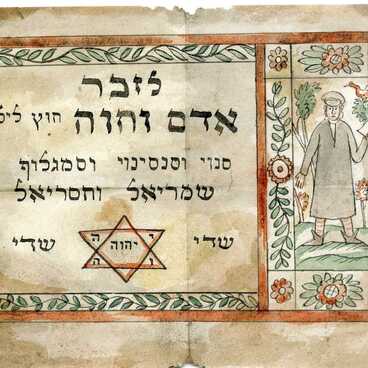 לזכר
אדם וחוה חוץ
סנוי וסנסינוי וסמגלוף
שמריאל וחסריאל
י ה
שדי יהוה שדי
ו ה